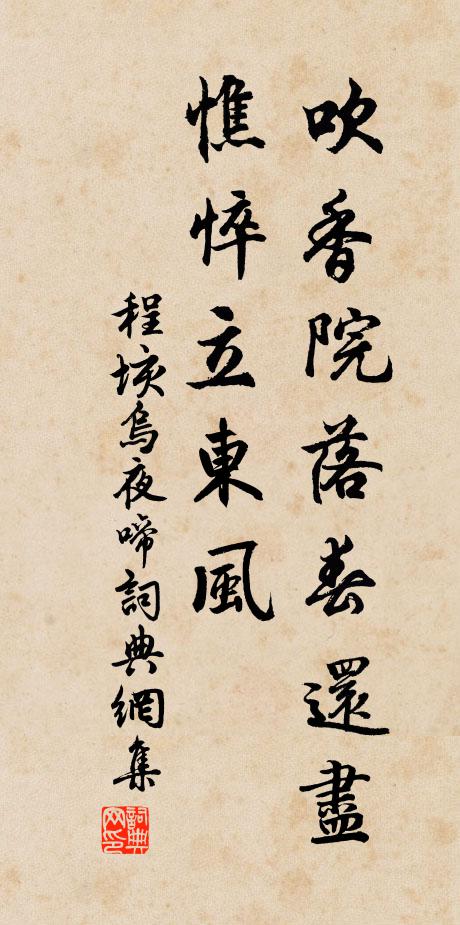 吹香院落春還盡
憔悴立東風
程垓烏夜啼詞典網集
詞典网印